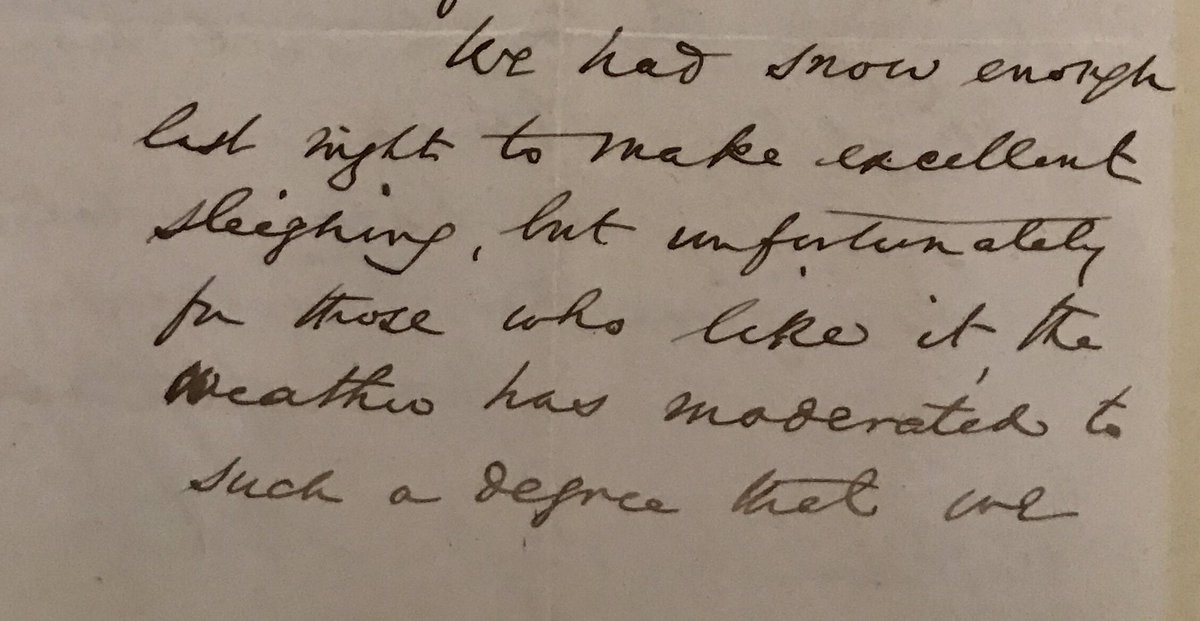 We had snow enough
last night to make excellent
sleighing, but unfortunately
for those who like it, the
weather has moderated to
such a degree that we